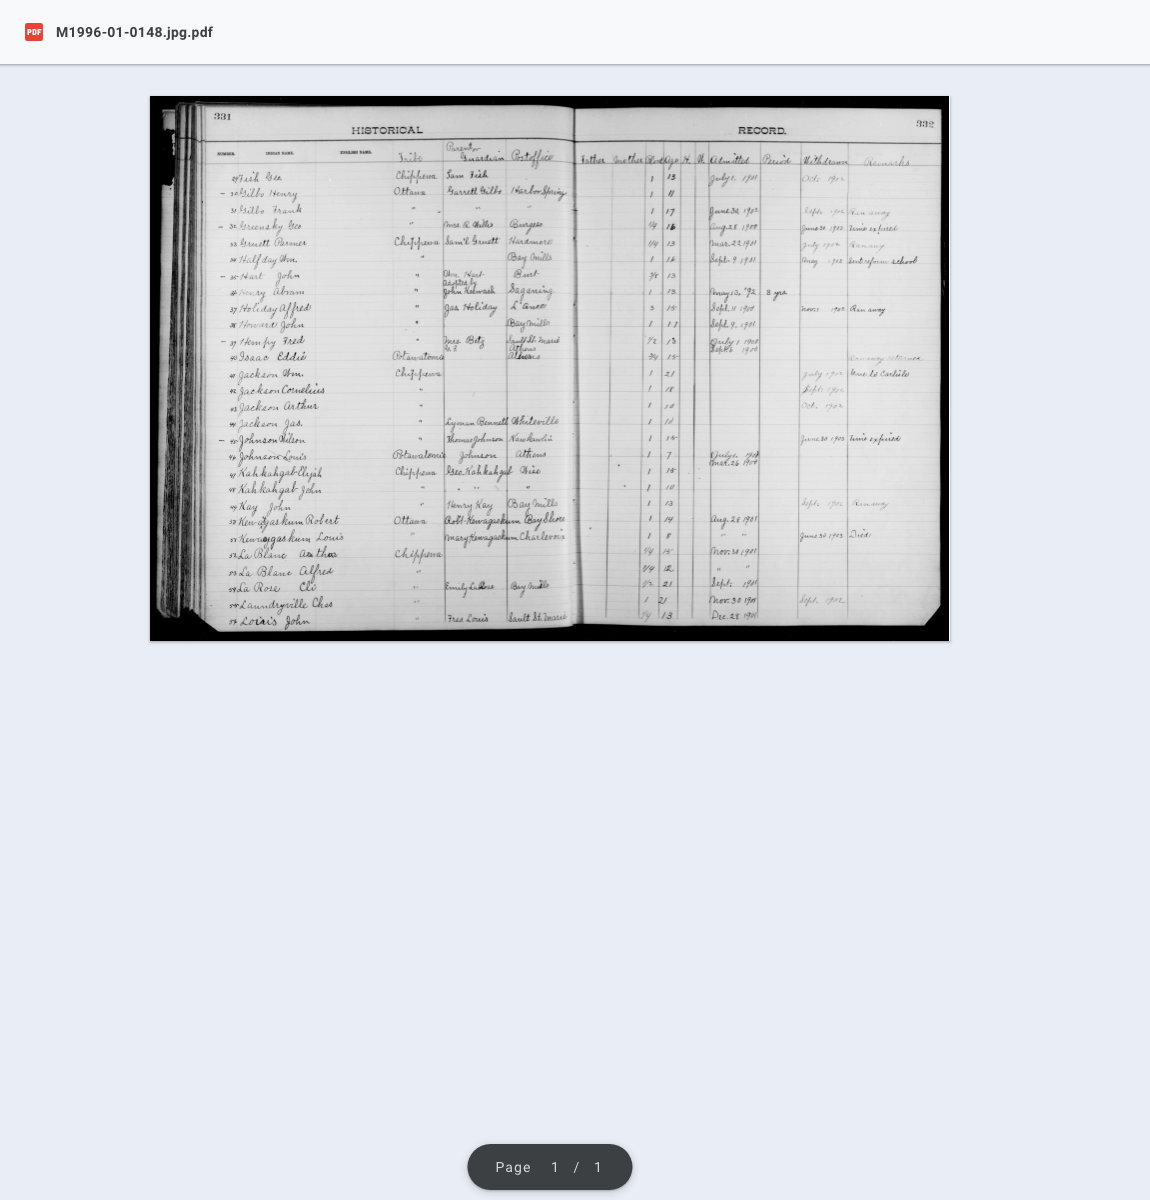 PDF M1996-01-0148.jpg.pdf
331 332
HISTORICAL RECORD.
NUMBER. INDIAN NAME. ENGLISH NAME. Tribe Parent or Guardian Postoffice Father Mother Blood Age H. W Admitted Period Withdrawn Remarks
29 Fish Geo Chippewa Sam Fish 1 13 July 1. 1901 Oct. 1902
– 30 Gilbo Henry Ottawa Garrett Gilbo Harbor Spring 1 11
31 Gilbo Frank " " " 1 17 June 30 1902 Sept. 1902 Ran away
– 32 Greensky Geo " Mrs R. Willis Burgess 3/4 16 Aug. 28 1900 June 30 1903 time expired
33 Gruett Parmer Chippewa Sam'l Gruett Hardmore 1/4 13 Mar. 22 1901 July 1902 Ran away
34 Halfday Wm. " Bay Mills 1 16 Sept. 9. 1901 May 1903 Sent reform school
– 35 Hart John " Wm. Hart Burt 3/4 13
36 Henry Abram " adopted by John Kahwash Saganing 1 13 May 12, '92 3 yrs
37 Holiday Alfred " Jas Holiday L'Anse 15 Sept. 11 1900 Nov. 1902 Ran away
38 Howard John " Bay Mills 1 11 Sept. 9. 1901
– 39 Hempy Fred " Mrs. Betz Sault St. Marie 1/2 13 July 1 1900
40 Isaac Eddie Potawatomi Athens 3/4 15 Ran away returned
41 Jackson Wm. Chippewa 1 21 July 1902 Gone to Carlisle
42 Jackson Cornelius " 1 18 Sept. 1902
43 Jackson Arthur " 1 10 Oct. 1902
44 Jackson Jas. " Lyman Bennett Whiteville 1 11
– 45 Johnson Wilson " Thomas Johnson 1 15 June 30 1903 time expired
46 Johnson Louis Potawatomie Johnson Athens 1 7 July 1. Mar. 26 1900
47 Kahkahgab Elijah Chippewa Geo. Kahkahgab 1 15
48 Kahkahgab John " " " " " 1 10
49 Kay John " Henry Kay Bay Mills 1 13 Sept. 1902 Ran away
50 Kewaygaskum Robert Ottawa Robt. Kewagaskum Bay Shore 1 14 Aug. 28 1901
51 Kewaygaskum Louis " Mary Kewagaskum Charlevoix 1 8 " " June 30 1903 Died
52 La Blanc Arthur Chippewa 1/4 15 Nov. 30 1901
53 La Blanc Alfred " 1/4 12 " "
54 La Rose Eli " Emily LaRose Bay Mills 1/2 21 Sept. 1901
Laundryville Chas " 1 21 Nov. 30 1901 Sept. 1902
Louis John " Fred Louis Sault St. Marie 3/4 13 Dec. 28 1901
Page 1 / 1